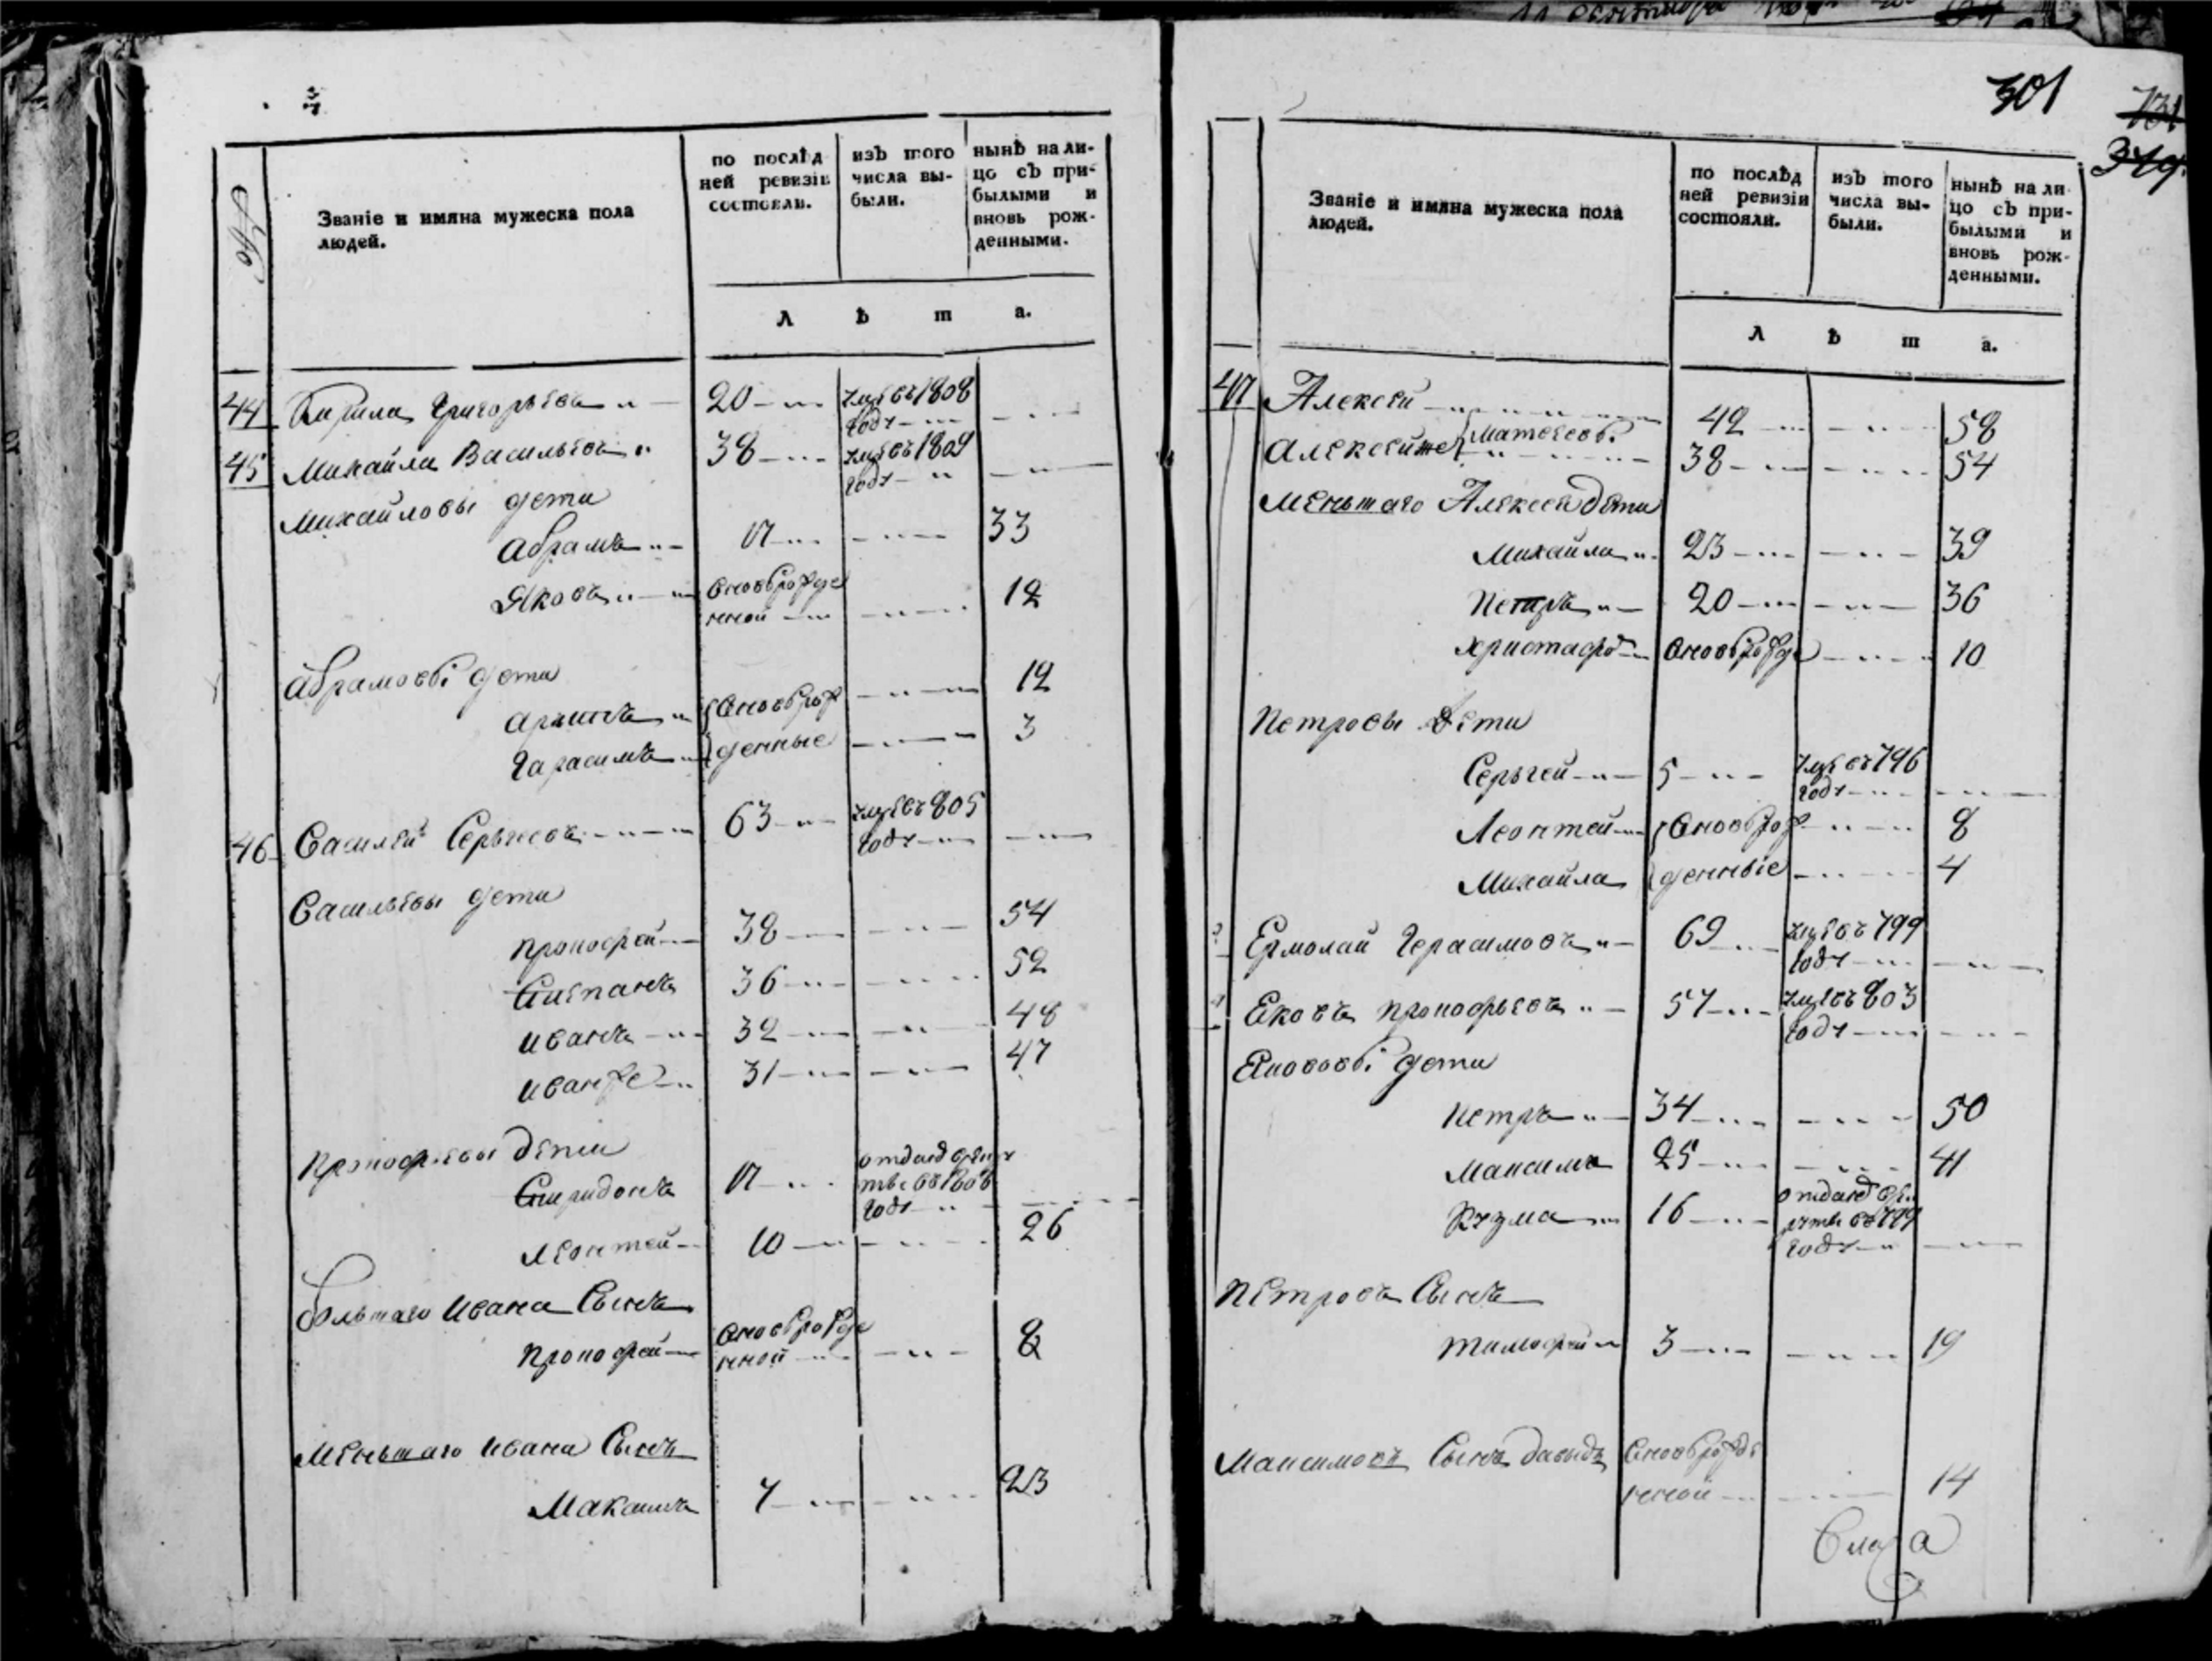 301
731
349.
№
Званіе и имяна мужеска пола людей.
по послѣд ней ревизіи состояли.
изъ того числа вы- были.
нынѣ на ли- цо съ при- былыми и вновь рож- денными.
Л ѣ т а.
44 Кирила Григорьевъ 20 умре въ 1808 году
45 Михайла Васильевъ 38 умре въ 1809 году
Михайловы дети
Абрамъ 17 33
Яковъ вновьрожде нной 12
Абрамовы дети
12
Гарасимъ денные 3
46 Василей Серьгеевъ 63 умре въ 805 году
Васильевы дети
Прокофей 38 54
Степанъ 36 52
Иванъ 32 48
Иванже 31 47
Прокофьевы дети
Спиридонъ 17 отданъ въ году
Леонтей 10 26
большаго Ивана Сынъ
Прокофей вновьрожде нной 8
Меньшаго Ивана Сынъ
7 23
Званіе и имяна мужеска пола людей.
по послѣд ней ревизіи состояли.
изъ того числа вы- были.
нынѣ на ли цо съ при- былыми и вновь рож- денными.
Л ѣ т а.
47 Алексей 42 58
Матвеевы
Алексейже 38 54
Меньшаго Алексея дети
Михайла 23 39
Петръ 20 36
Христафоръ вновьрожде 10
Петровы дети
Серьгей 5 умре въ 796 году
Леонтей вновьрож 8
Михайла денные 4
Ермолай Герасимовъ 69 умре въ 799 году
Яковъ Прокофьевъ 57 умре въ 803 году
Яковов. дети
Петръ 34 50
Максимъ 25 41
Кузма 16 отданъ въ 799 году
Петровъ Сынъ
Тимофей 3 19
Максимовъ Сынъ Давыдъ вновьрожде нной 14